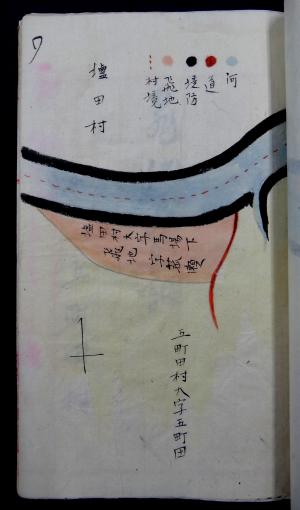 河
道
堤防
飛地
村境
塩田村
塩田村大字馬場下
字籔瀬
飛地
五町田村大字五町田